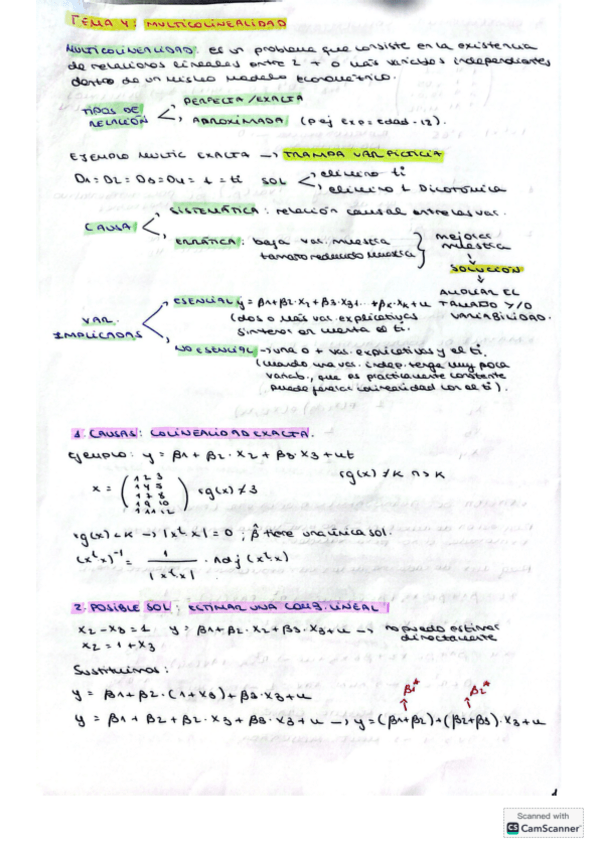 TEMA 4: MULTICOLINEALIDAD
MULTICOLINEALIDAD: es un problema que consiste en la existencia
de relaciones lineales entre 2 + o más variables independientes
dentro de un mismo modelo econométrico.
TIPOS DE RELACIÓN
PERFECTA/EXACTA
APROXIMADA (P.ej exp = edad - 18).
EJEMPLO MULTIC EXACTA → TRAMPA VAR FICTICIA
D1 = D2 = D3 = D4 = 1 = ti SOL
elimino ti
elimino 1 Dicotómica
CAUSA
SISTEMÁTICA: relación causal entre las var.
ERRÁTICA: baja var. muestra
tamaño reducido muestra
mejorar
muestra
SOLUCIÓN
AMPLIAR EL
TAMAÑO Y/O
VARIABILIDAD.
VAR.
IMPLICADAS
ESENCIAL y = β1 + β2·x2 + β3·x3 + .. + βk·xk + u
(dos o más var. explicativas
sin tener en cuenta el ti.
NO ESENCIAL → una o + var. explicativas y el ti.
(cuando una var. indep. tenga muy poca
variab., que es prácticamente constante
puede parecer colinealidad con el ti).
1. CAUSAS: COLINEALIDAD EXACTA.
Ejemplo: y = β1 + β2·x2 + β3·x3 + ut
x = rg(x) ≠ 3
rg(x) ≠ k n > k
rg(x) < k → |xᵗx| = 0 ; β̂ tiene una única sol.
(xᵗx)⁻¹ = 1 / |xᵗx| · Adj (xᵗx)
2. POSIBLE SOL; ESTIMAR UNA COMB. LINEAL
x2 - x3 = 1 y = β1 + β2·x2 + β3·x3 + u → no puedo estimar
directamente
x2 = 1 + x3
Sustituimos:
y = β1 + β2·(1 + x3) + β3·x3 + u
β1* β2*
y = β1 + β2 + β2·x3 + β3·x3 + u → y = (β1 + β2) + (β2 + β3)·x3 + u
1
Scanned with
CS CamScanner